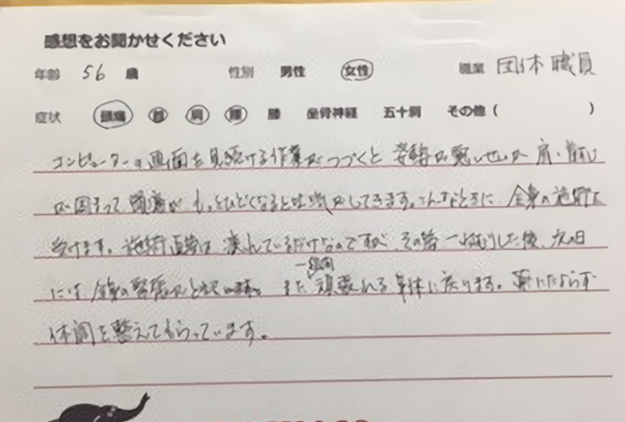 感想をお聞かせください
年齢 56 歳 性別 男性 女性 職業 団体職員
症状 頭痛 首 肩 腰 膝 坐骨神経 五十肩 その他( )
コンピューターの画面を見続ける作業がつづくと 姿勢が悪いせいか 肩・首すじ
が固まって 頭痛が もっとひどくなると してきます。こんなときに 全身の施術を
受けます。施術直後は 疲れているだけなのですが、その後 一ねむりした後、次の日
には、全身の緊張が とれ また 一週間 頑張れる 身体に戻ります。
体調を整えてもらっています。